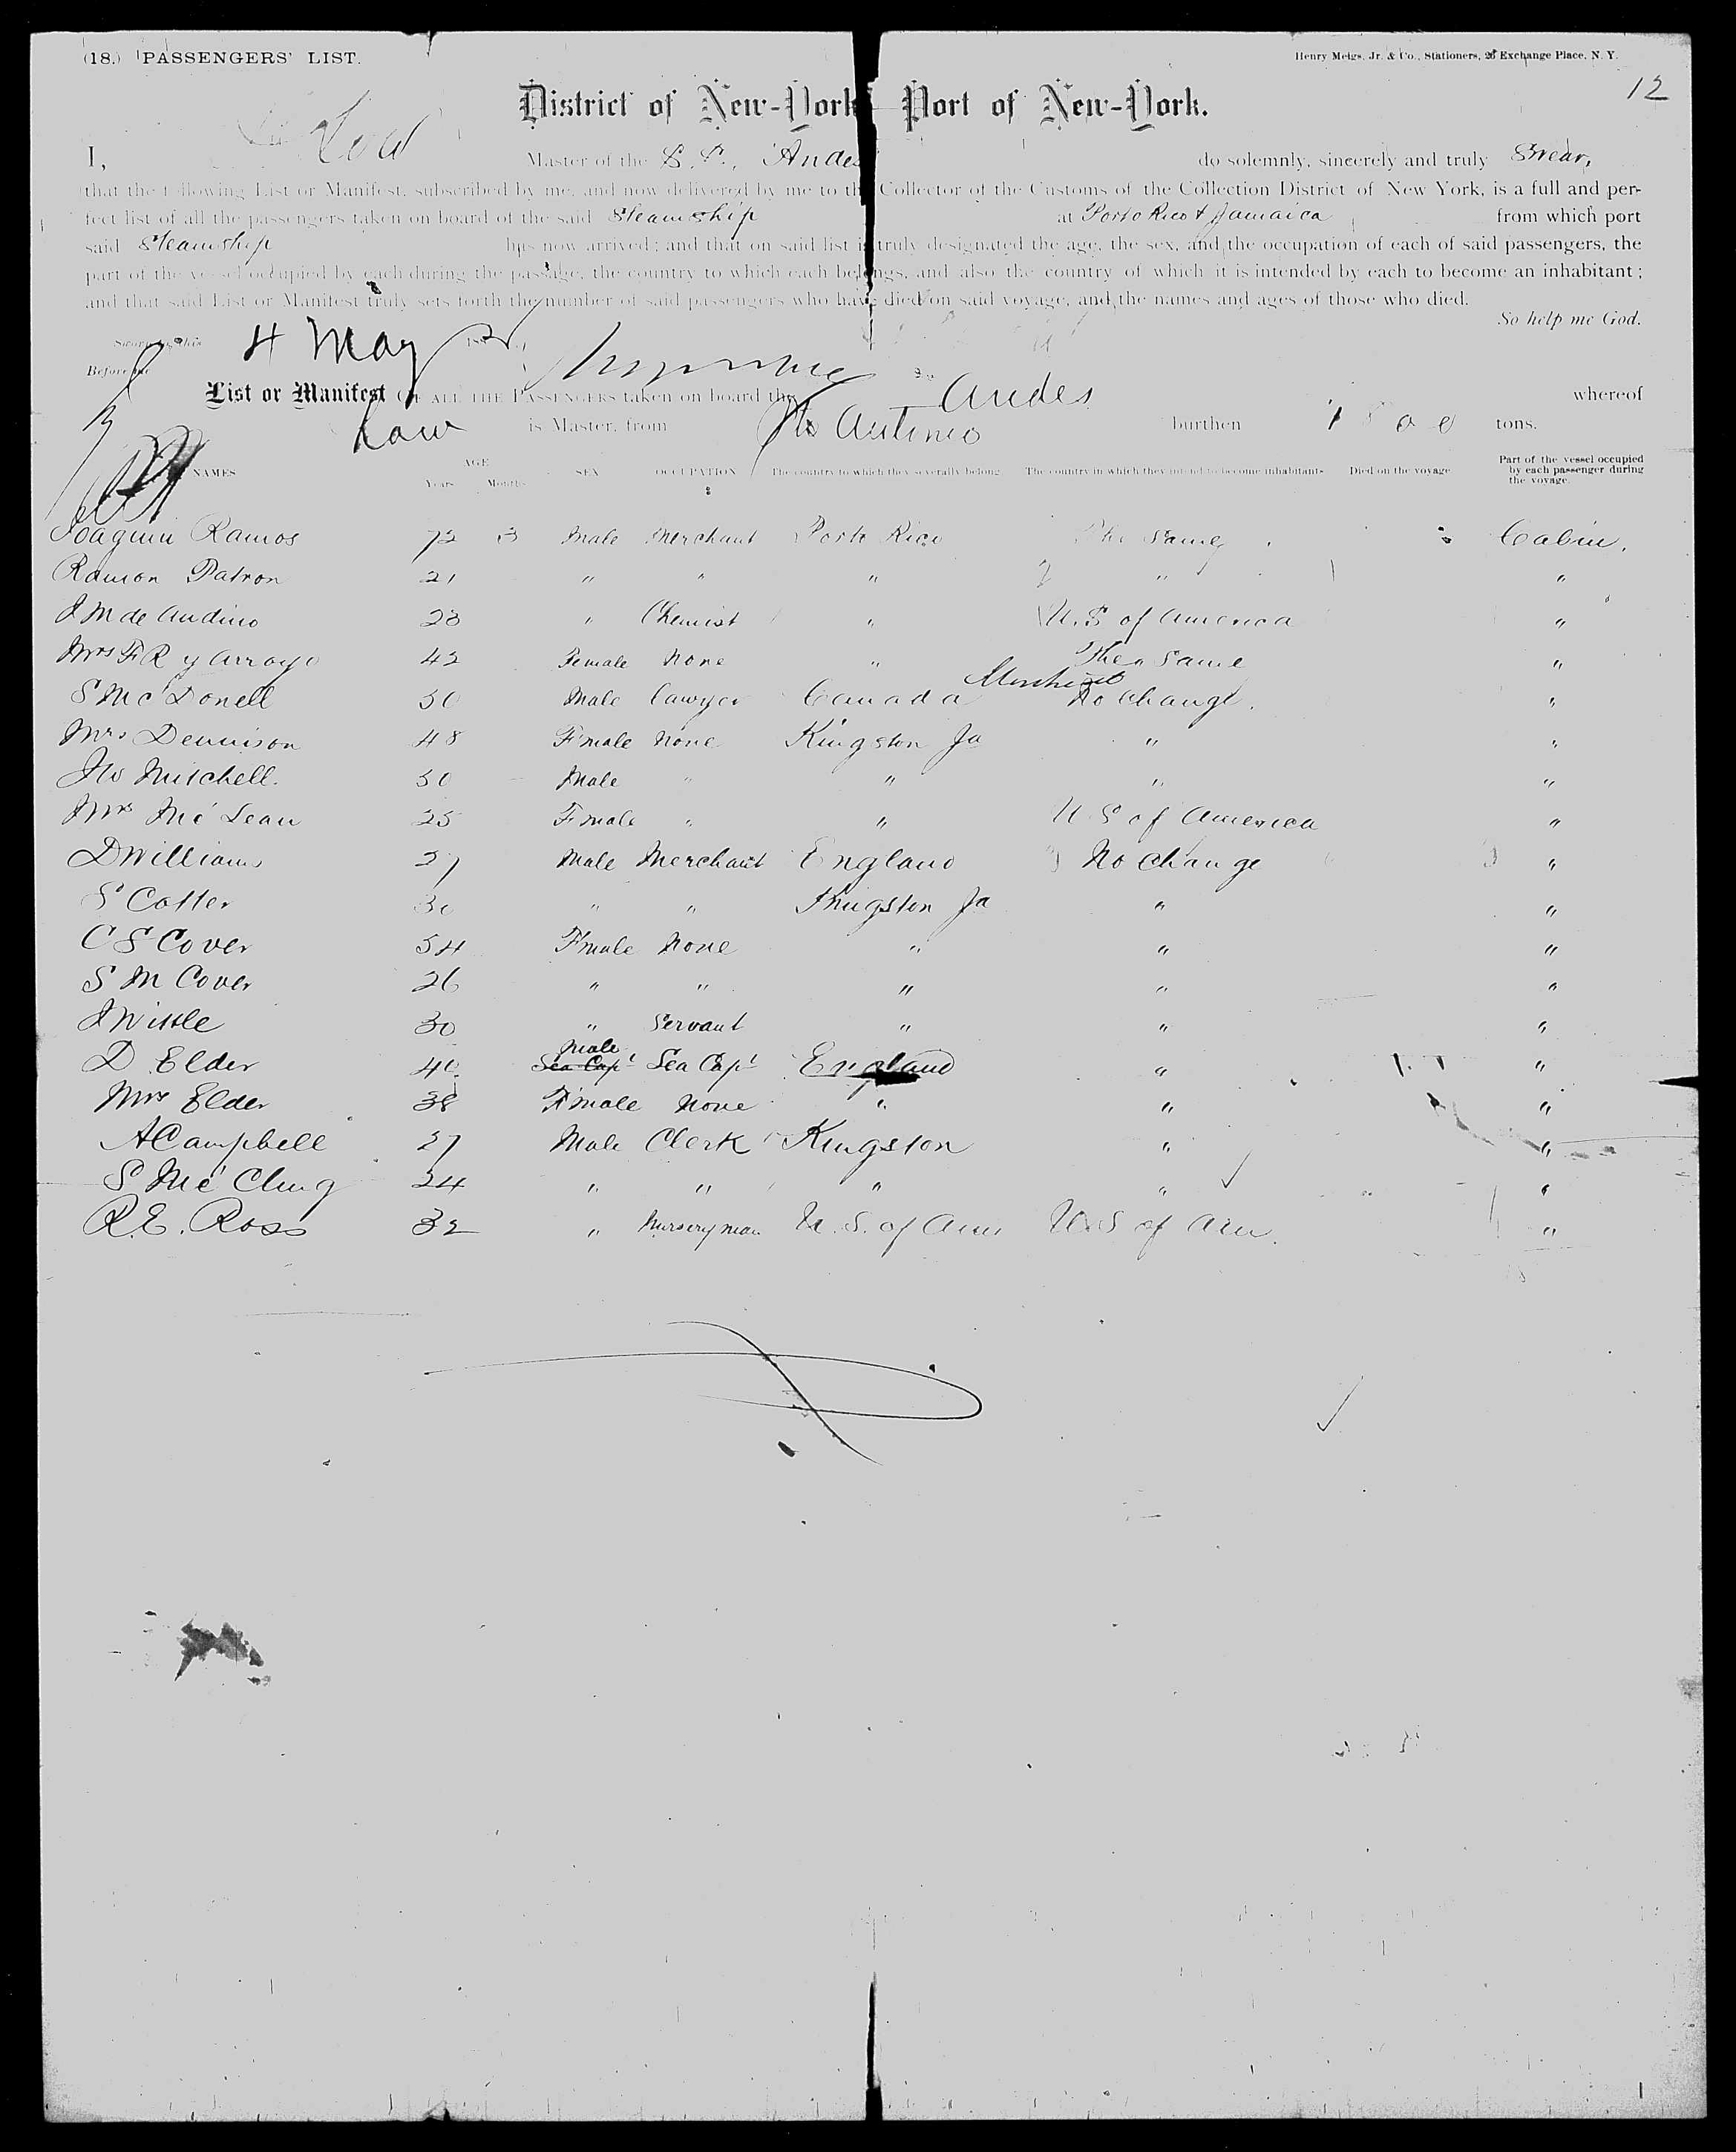 (18.) PASSENGERS' LIST.
Henry Meigs, Jr. & Co., Stationers, 26 Exchange Place, N. Y.
12
District of New-York Port of New-York.
I, Low Master of the S.S. Andes do solemnly, sincerely and truly Swear,
that the following List or Manifest, subscribed by me, and now delivered by me to the Collector of the Customs of the Collection District of New York, is a full and per-
fect list of all the passengers taken on board of the said Steamship at Porto Rico & Jamaica from which port
said Steamship has now arrived; and that on said list is truly designated the age, the sex, and the occupation of each of said passengers, the
part of the vessel occupied by each during the passage, the country to which each belongs, and also the country of which it is intended by each to become an inhabitant;
and that said List or Manifest truly sets forth the number of said passengers who have died on said voyage, and the names and ages of those who died.
So help me God.
Sworn to this 4 May 188
Before me
List or Manifest OF ALL THE PASSENGERS taken on board the Andes whereof
Low is Master, from burthen tons.
NAMES AGE Years Months SEX OCCUPATION The country to which they severally belong The country in which they intend to become inhabitants Died on the voyage Part of the vessel occupied by each passenger during the voyage.
Joaquin Ramos 72 3 Male Merchant Porto Rico The Same Cabin.
Ramon Patron 21 " " " " "
J M de Andino 28 " Chemist " U.S of America "
Mrs F R y Arroyo 42 Female None " The Same "
S McDonell 50 Male Lawyer Canada No Change. "
Mrs Dennison 48 Female None Kingston Ja " "
Jw Mitchell. 50 Male " " " "
Mrs McLean 25 Female " " U S of America "
D Williams 27 Male Merchant England No Change "
S Cotter 30 " " Kingston Ja " "
C S Cover 54 Female None " " "
S M Cover 26 " " " " "
J Wittle 30 " Servant " " "
D Elder 40 Male Sea Capt Sea Capt England " "
Mrs Elder 38 Female None " " "
A Campbell 27 Male Clerk Kingston " "
S McClung 24 " " " " "
R.E. Ross 32 " Nurseryman U.S. of Am U.S of Am. "